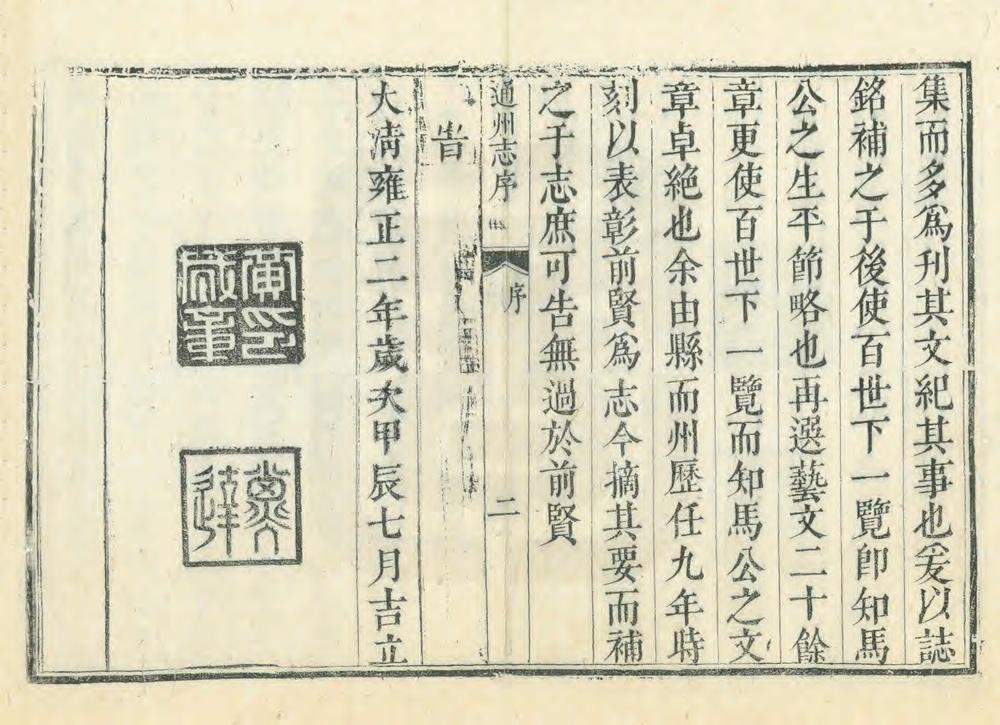 集而多爲刊其文紀其事也爰以誌
銘補之于後使百世下一覽卽知馬
公之生平節略也再選藝文二十餘
章更使百世下一覽而知馬公之文
章卓絶也余由縣而州歷任九年時
刻以表彰前賢爲志今摘其要而補
之于志庶可告無過於前賢
通州志序
序
二
旹
大淸雍正二年歲次甲辰七月吉立